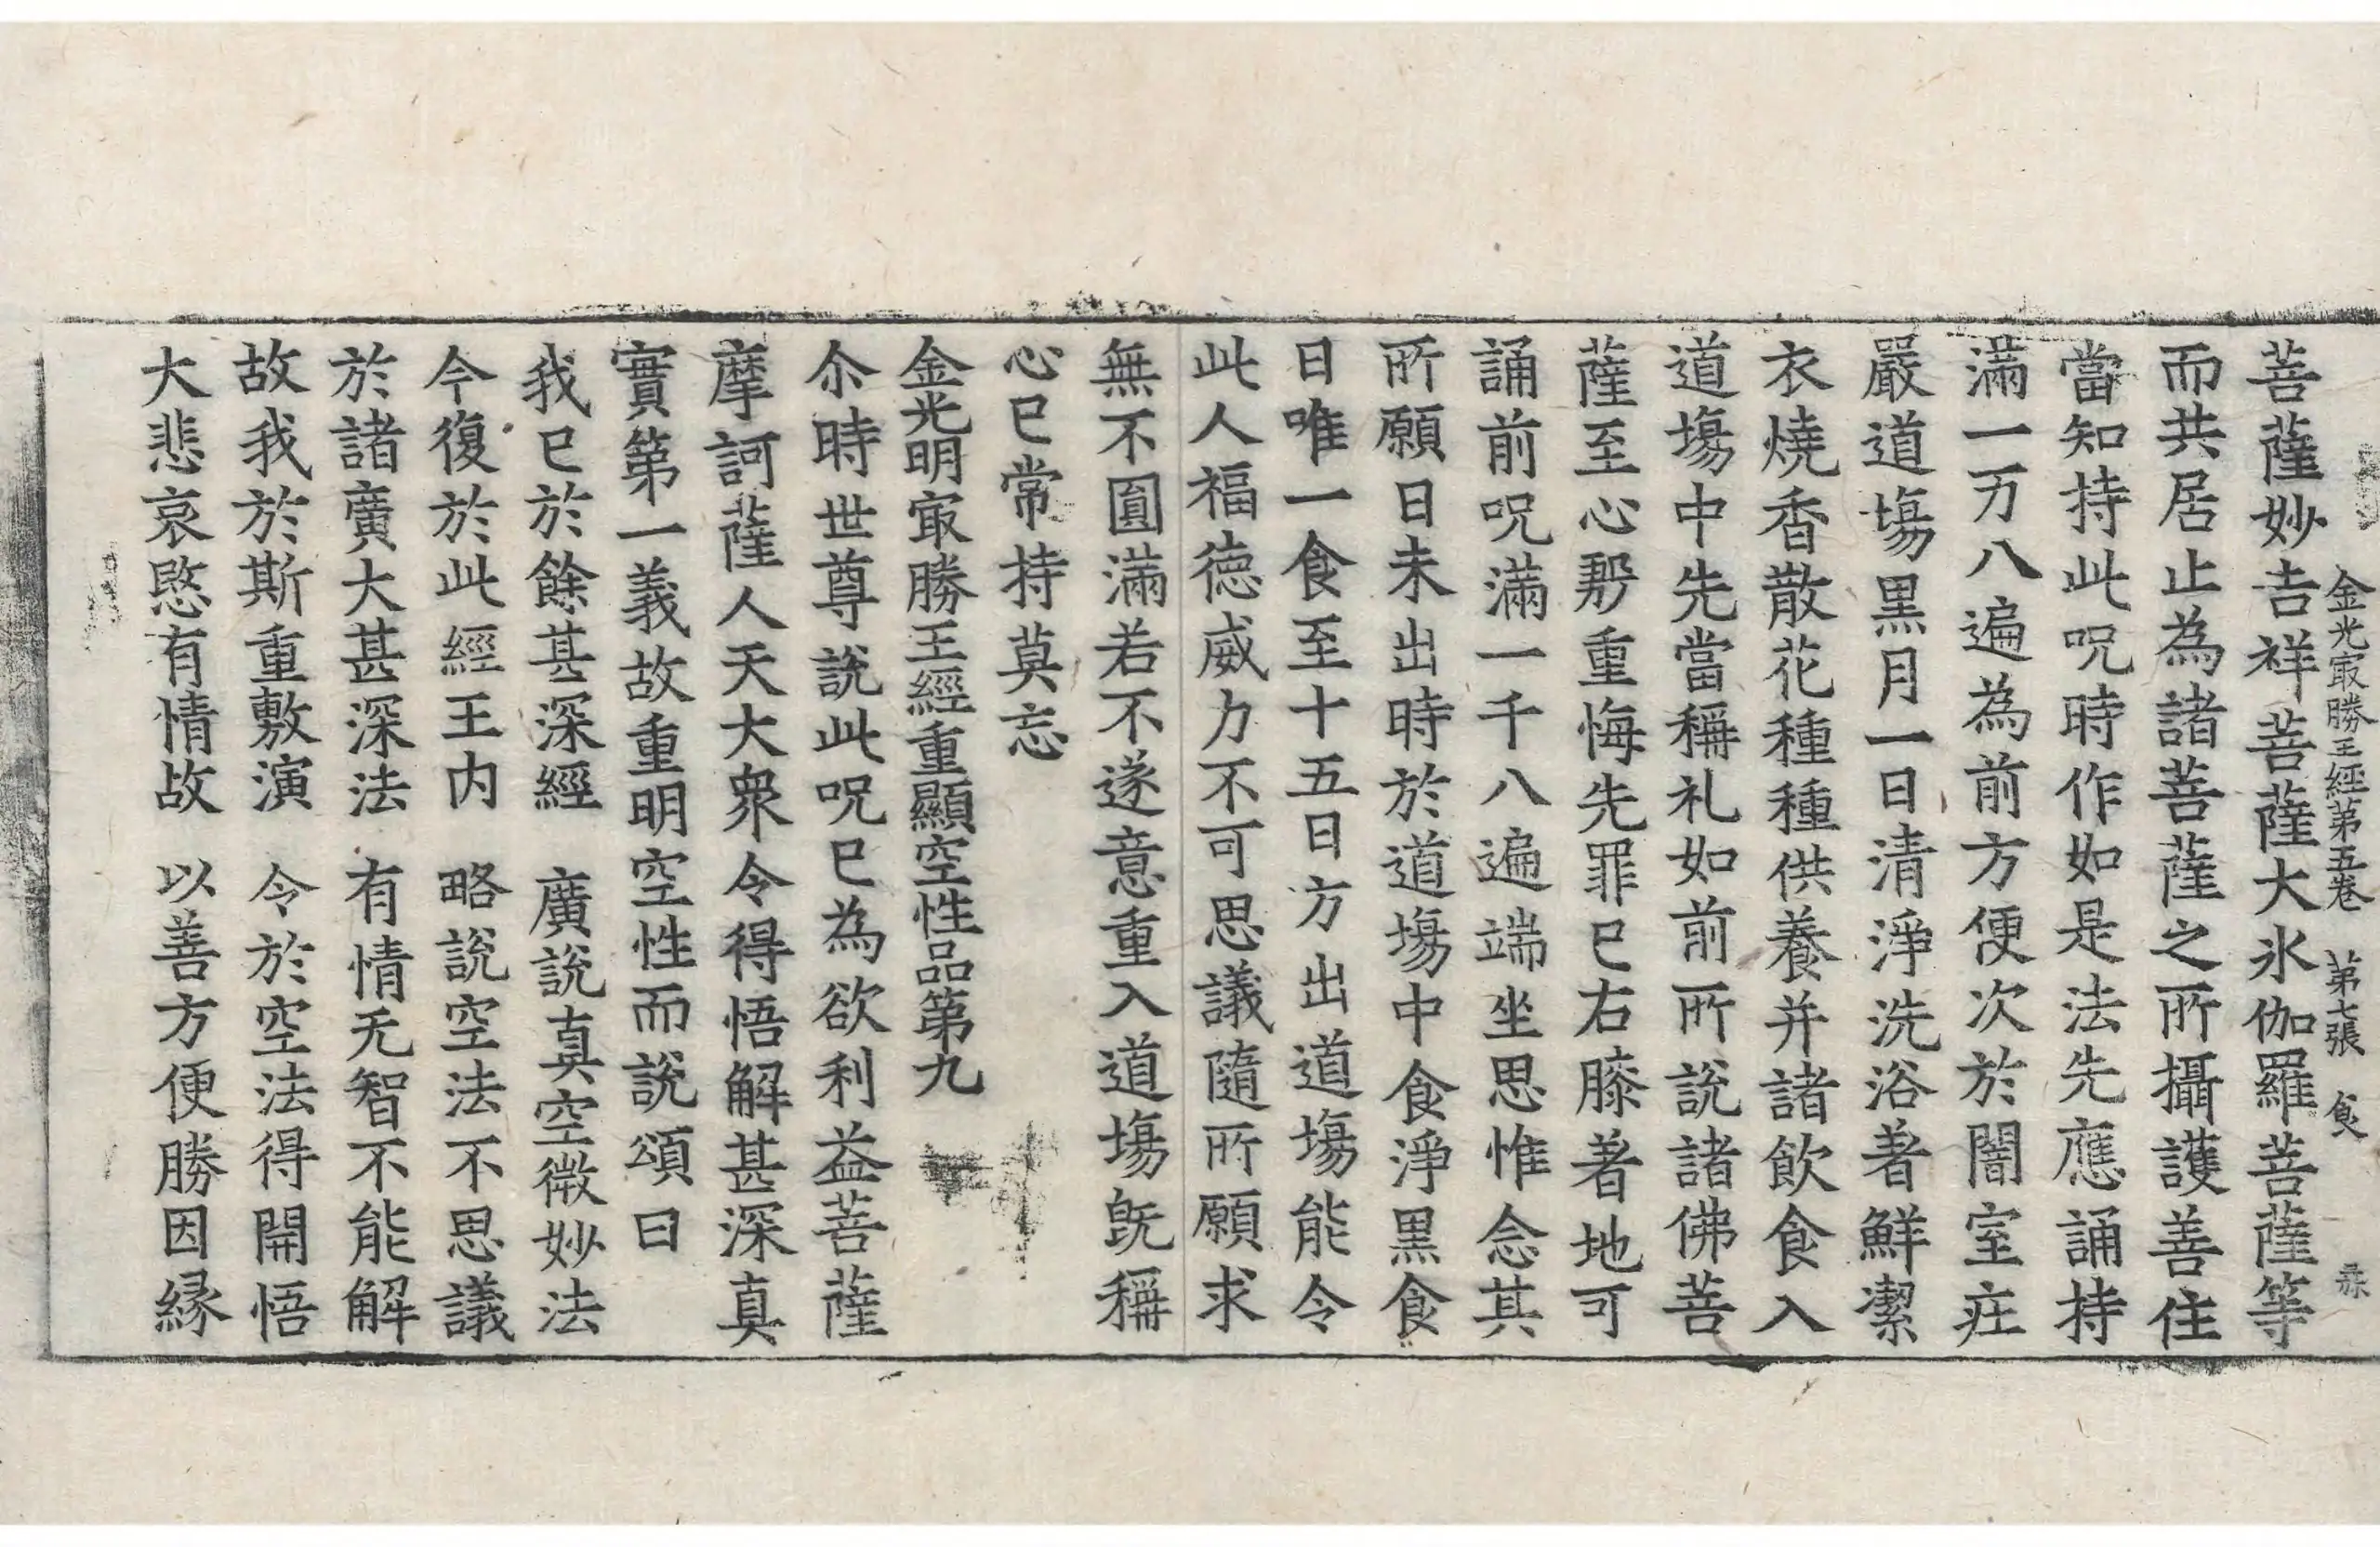 金光㝡勝王經第五卷　第七張　食
菩薩妙吉祥菩薩大氷伽羅菩薩等
而共居止為諸菩薩之所攝護善住
當知持此呪時作如是法先應誦持
滿一万八遍為前方便次於闇室疰
嚴道場黒月一日清淨洗浴著鮮潔
衣燒香散花種種供養并諸飲食入
道場中先當稱礼如前所說諸佛菩
薩至心慇重悔先罪已右膝著地可
誦前呪滿一千八遍端坐思惟念其
所願日未出時於道場中食淨黒食
日唯一食至十五日方出道場能令
此人福德威力不可思議隨所願求
無不圓滿若不遂意重入道場旣稱
心已常持莫忘
金光明㝡勝王經重顯空性品第九
尒時世尊說此呪已為欲利益菩薩
摩訶薩人天大衆令得悟解甚深真
實第一義故重明空性而說頌曰
我已於餘甚深經　廣說真空微妙法
今復於此經王内　略說空法不思議
於諸廣大甚深法　有情无智不能解
故我於斯重敷演　令於空法得開悟
大悲哀愍有情故　以善方便勝因縁